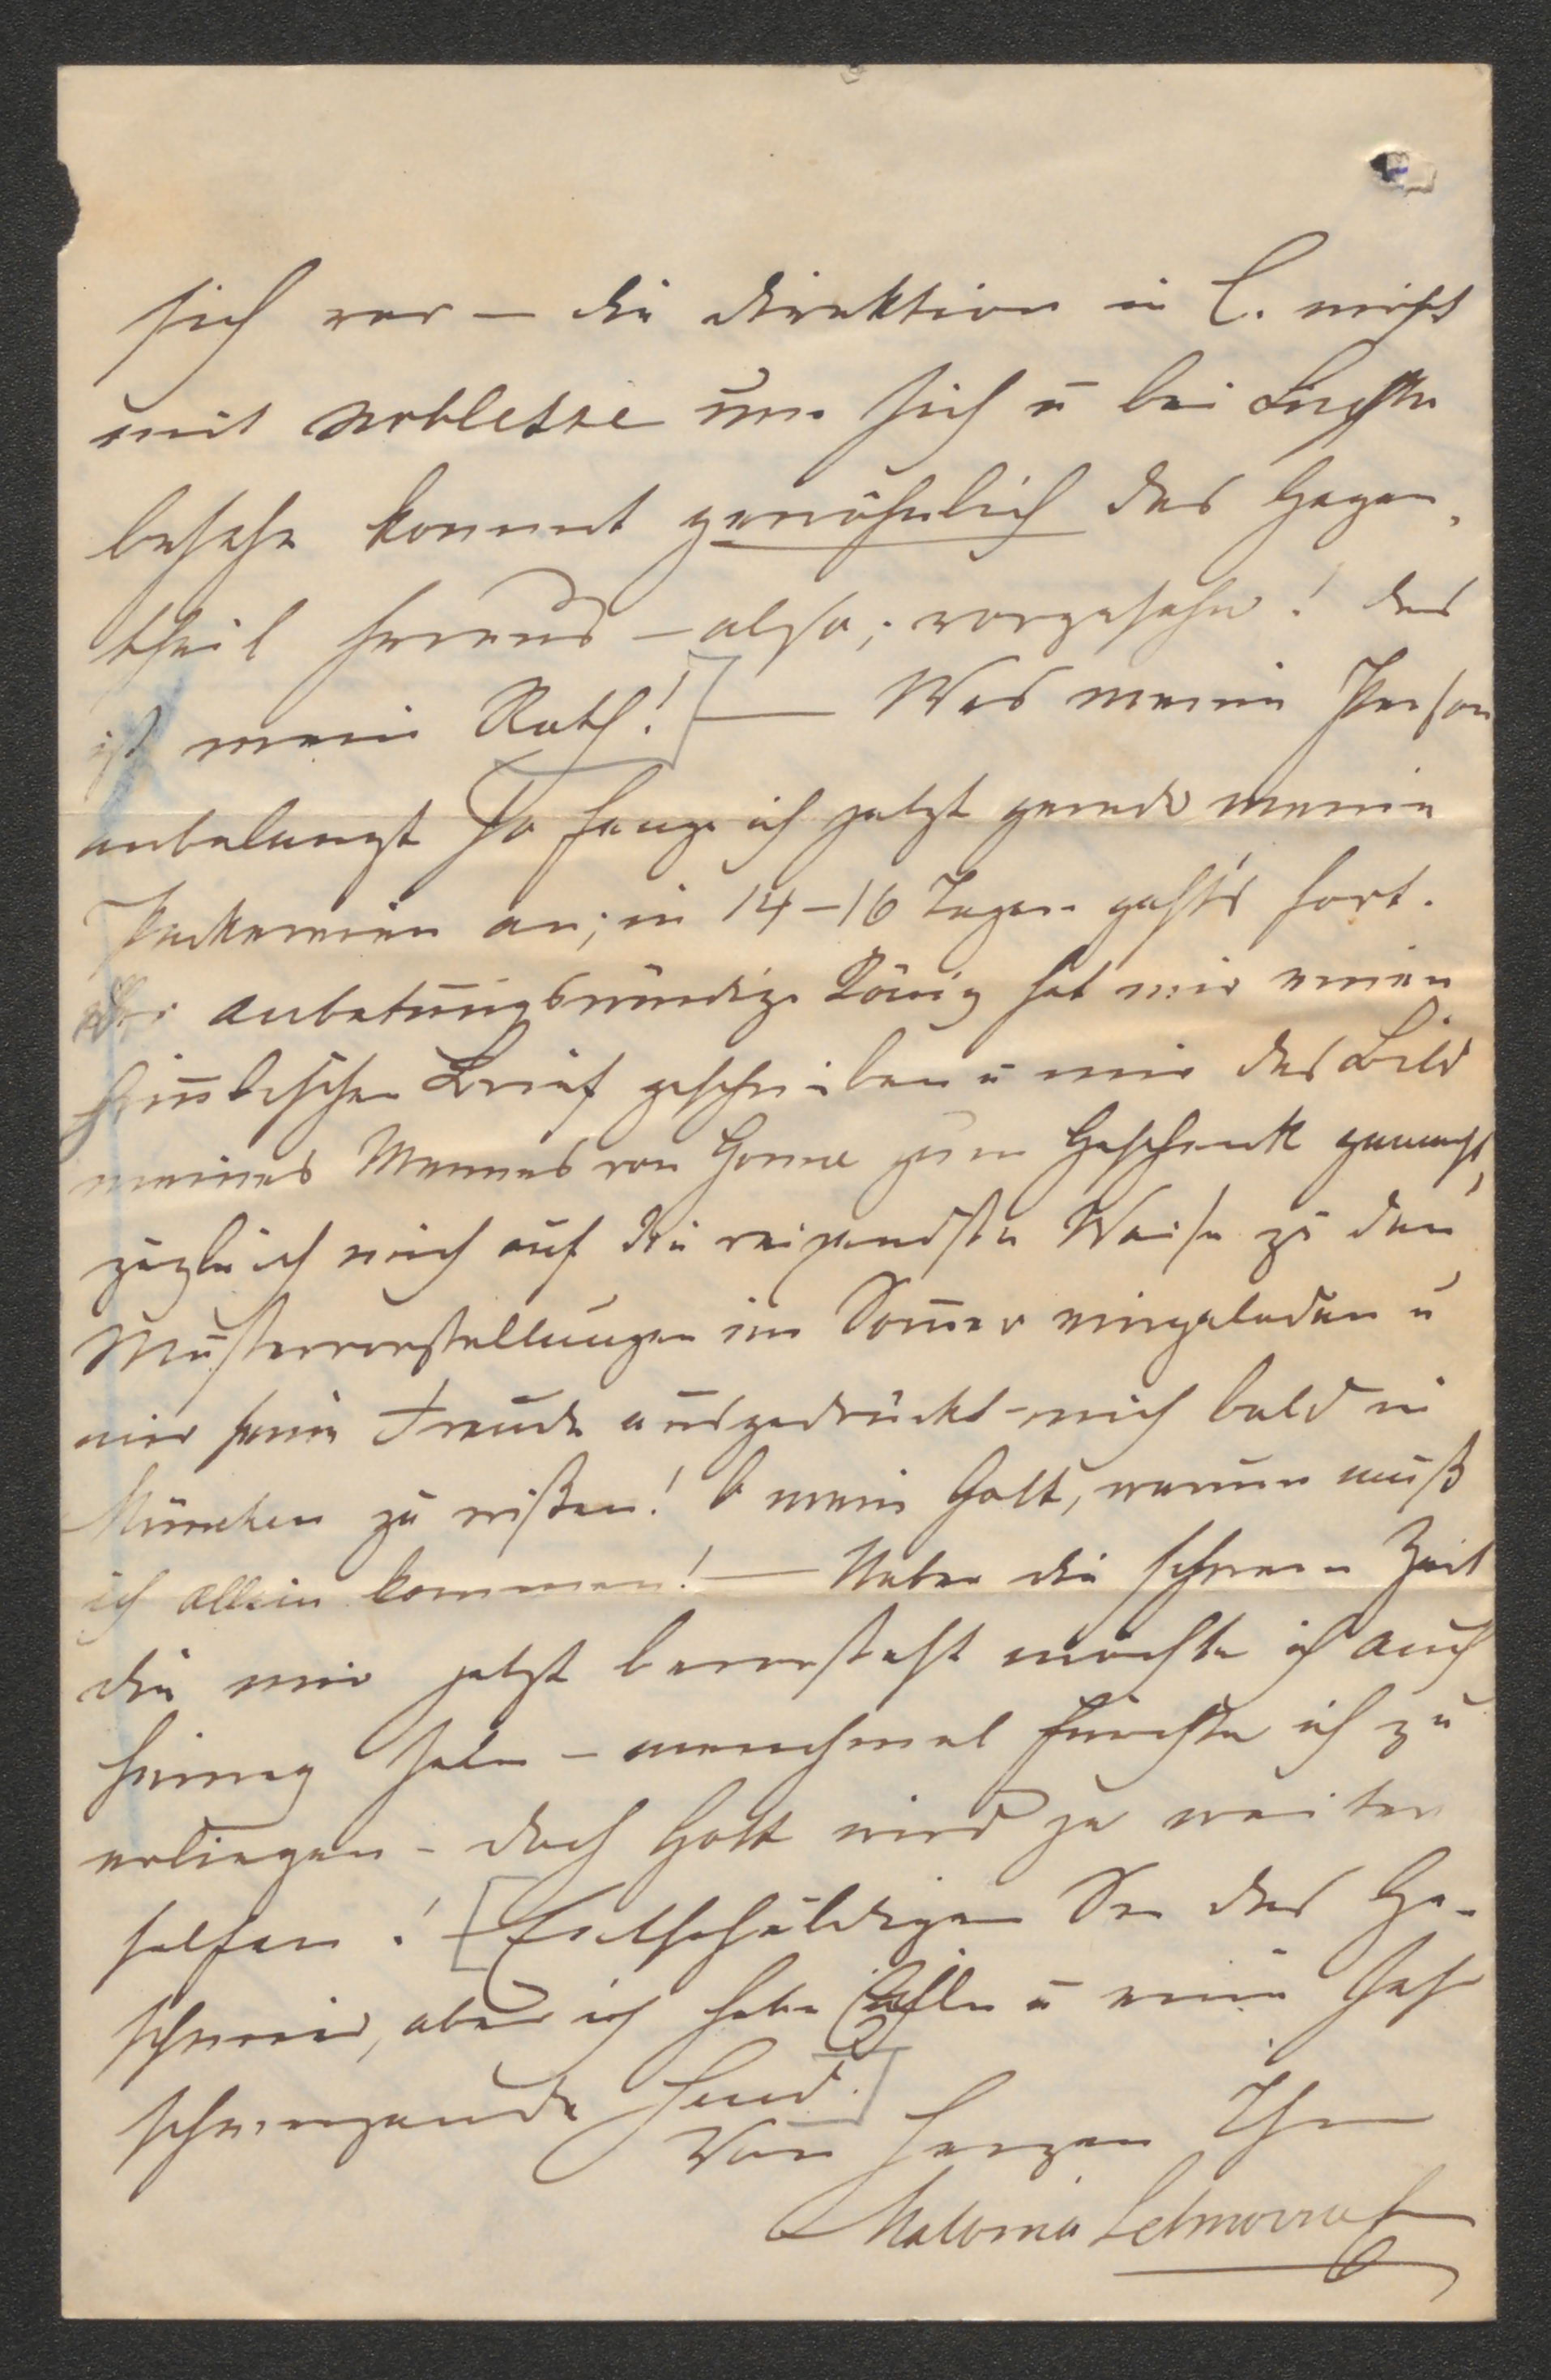 sich vor — die Direktion in C. wirft
mit Noblesse um sich u bei Lichte
besehe kommt gewöhnlich das Gegen-
theil heraus — also, vorgesehn! das
ist mein Rath! — Was meine Person
anbelangt so fange ich jetzt gerade meine
Packereien an; in 14–16 Tagen geht's fort.
Der anbetungswürdige König hat mir einen
himlischen Brief geschrieben u mir das Bild
meines Mannes von Gonne zum Geschenk gemacht,
zugleich mich auf die reizendste Weise zu den
Mustervorstellungen im Somer eingeladen u
mir seine Freude ausgedrückt – mich bald in
München zu wißen! O mein Gott, warum muß
ich allein kommen! — Ueber die schwere Zeit
die mir jetzt bevorsteht möchte ich auch
hinweg sein – manchmal fürchte ich zu
erliegen – doch Gott wird ja weiter
helfen! – Entschuldigen Sie das Ge-
schmier, aber ich habe Eile u eine sehr
schmerzende Hand.
Von Herzen Ihre
Malvina Schnorr v C